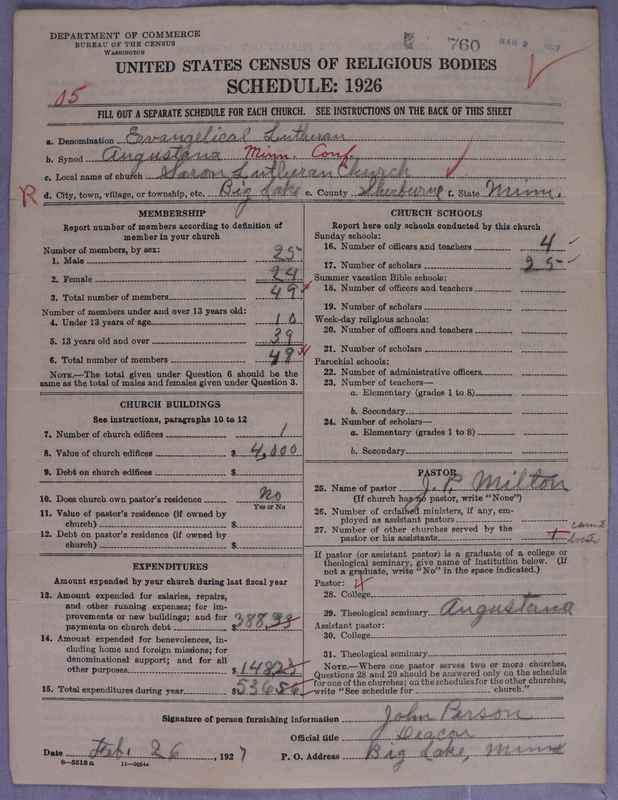 DEPARTMENT OF COMMERCE
BUREAU OF THE CENSUS
WASHINGTON
760
MAR 2 1927
UNITED STATES CENSUS OF RELIGIOUS BODIES
SCHEDULE: 1926
05
FILL OUT A SEPARATE SCHEDULE FOR EACH CHURCH. SEE INSTRUCTIONS ON THE BACK OF THIS SHEET
a. Denomination Evangelical Lutheran
b. Synod Augustana Minn. Conf.
c. Local name of church Saron Lutheran Church
R d. City, town, village, or township, etc. Big Lake e. County Sherburne f. State Minn.
MEMBERSHIP
Report number of members according to definition of
member in your church
Number of members, by sex:
1. Male 25
2. Female 24
3. Total number of members 49
Number of members under and over 13 years old:
4. Under 13 years of age 10
5. 13 years old and over 39
6. Total number of members 49
NOTE.—The total given under Question 6 should be
same as the total of males and females given under Question 3.
CHURCH BUILDINGS
See instructions, paragraphs 10 to 12
7. Number of church edifices 1
8. Value of church edifices $ 4,000
9. Debt on church edifices $
10. Does church own pastor's residence No
Yes or No
11. Value of pastor's residence (if owned by
church) $
12. Debt on pastor's residence (if owned by
church) $
EXPENDITURES
Amount expended by your church during last fiscal year
13. Amount expended for salaries, repairs,
and other running expenses; for im-
provements or new buildings; and for
payments on church debt $388.33
14. Amount expended for benevolences, in-
cluding home and foreign missions; for
denominational support; and for all
other purposes $148.23
15. Total expenditures during year $536.56
CHURCH SCHOOLS
Report here only schools conducted by this church
Sunday schools:
16. Number of officers and teachers 4
17. Number of scholars 25
Summer vacation Bible schools:
18. Number of officers and teachers
19. Number of scholars
Week-day religious schools:
20. Number of officers and teachers
21. Number of scholars
Parochial schools:
22. Number of administrative officers
23. Number of teachers—
a. Elementary (grades 1 to 8)
b. Secondary
24. Number of scholars—
a. Elementary (grades 1 to 8)
b. Secondary
PASTOR
25. Name of pastor J. P. Milton
(If church has no pastor, write "None")
26. Number of ordained ministers, if any, em-
ployed as assistant pastors
27. Number of other churches served by the
pastor or his assistants 1
If pastor (or assistant pastor) is a graduate of a college or
theological seminary, give name of institution below. (If
not a graduate, write "No" in the space indicated.)
Pastor:
28. College
29. Theological seminary Augustana
Assistant pastor:
30. College
31. Theological seminary
NOTE.—Where one pastor serves two or more churches,
Questions 28 and 29 should be answered only on the schedule
for one of the churches; on the schedules for the other churches,
write "See schedule for church."
Signature of person furnishing information John Person
Official title Deacon
Date Feb. 26, 1927 P. O. Address Big Lake, Minn
8—5518a 11—9054a